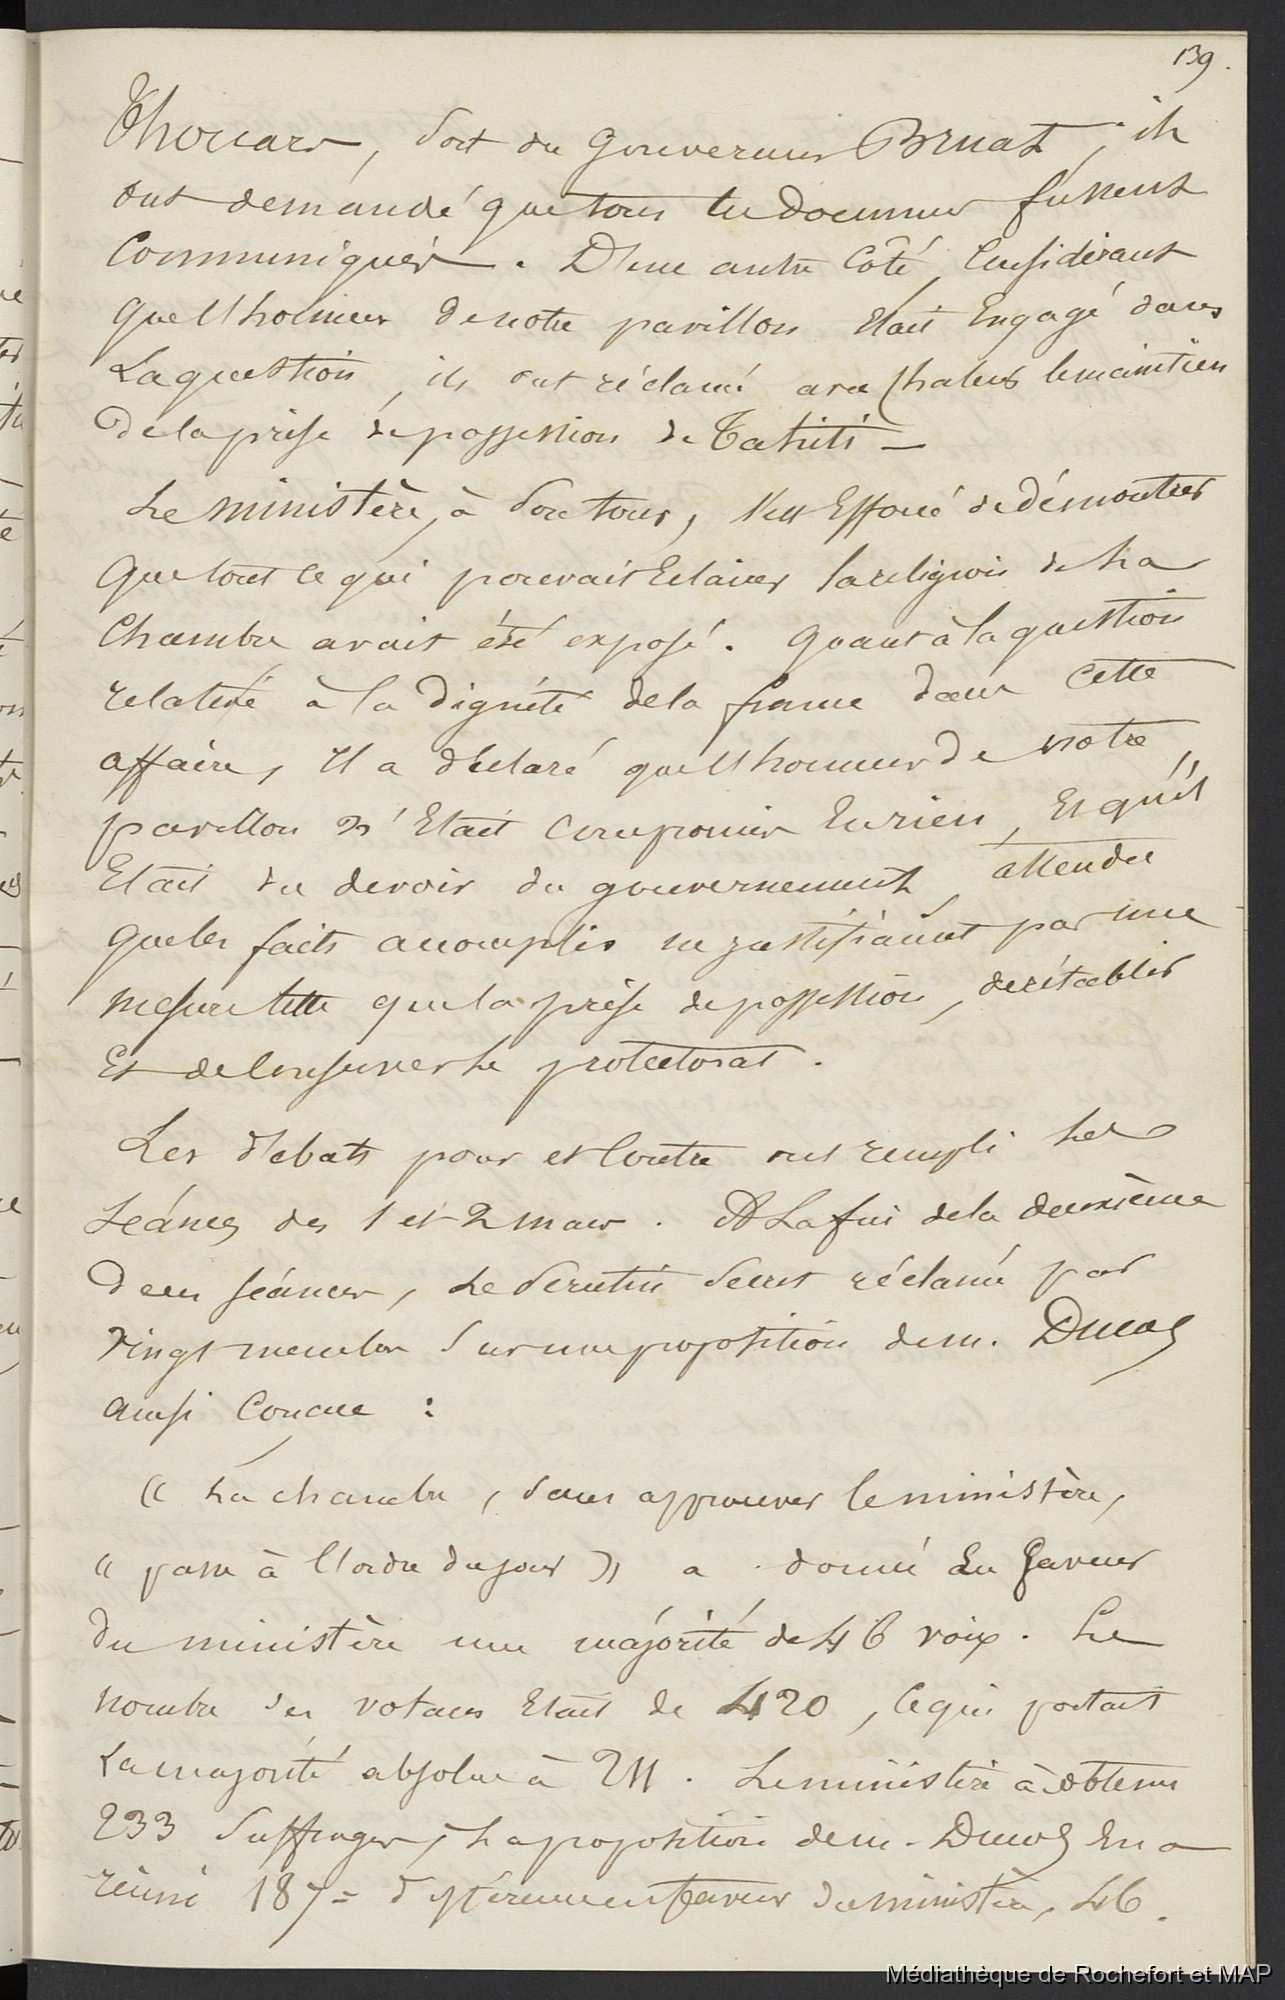 139.
Thouars, soit du gouverneur Bruat, ils
ont demandé que tous les documens fussent
communiqués. D'une autre côté, considérant
que l'honneur de notre pavillon était engagé dans
la question, ils ont réclamé avec chaleur le maintien
de la prise de possession de Tahiti —
Le ministère, à son tour, s'est efforcé de démontrer
que tout ce qui pouvait éclairer la religion de la
chambre avait été exposé. Quant à la question
relative à la dignité de la france dans cette
affaire, il a déclaré que l'honneur de notre
pavillon n'était compromis en rien, et qu'il
était du devoir du gouvernement, attendu
que les faits accomplis ne justifiaient pas une
mesure telle que la prise de possession, de rétablir
et de conserver le protectorat.
Les débats pour et contre ont rempli les
séances des 1 et 2 mars. A la fin de la deuxième
de ces séances, le scrutin secret réclamé par
vingt membres sur une proposition de m. Ducos
ainsi conçue :
« La chambre, sans approuver le ministère,
« passe à l'ordre du jour » a donné en faveur
du ministère une majorité de 46 voix. Le
nombre des votans était de 420, ce qui portait
la majorité absolue à 211. Le ministère a obtenu
233 suffrages, la proposition de m. Ducos en a
réuni 187 = différence en faveur du ministère, 46.
Médiathèque de Rochefort et MAP